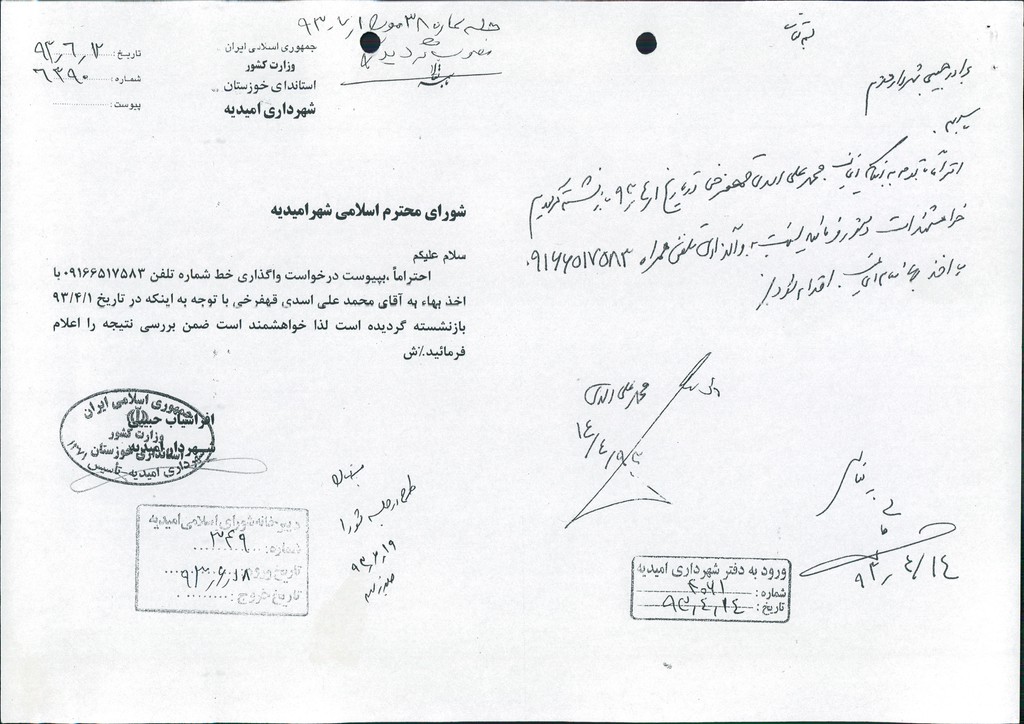 جلسه شماره ۳۸ مورخ ۹۳/۷/۱
جمهوری اسلامی ایران
وزارت کشور
استانداری خوزستان
شهرداری امیدیه
تاریخ: ۹۳٫۶٫۱۲
شماره: ۶۳۹۰
پیوست:
شورای محترم اسلامی شهرامیدیه
سلام علیکم
احتراماً ،بپیوست درخواست واگذاری خط شماره تلفن ۰۹۱۶۶۵۱۷۵۸۳ با
اخذ بهاء به آقای محمد علی اسدی قهفرخی با توجه به اینکه در تاریخ ۹۳/۴/۱
بازنشسته گردیده است لذا خواهشمند است ضمن بررسی نتیجه را اعلام
فرمائید.٪ش
افراسیاب حبیبی
شهردار امیدیه
جمهوری اسلامی ایران
وزارت کشور
استانداری خوزستان
شهرداری امیدیه
تأسیس
دبیرخانه شورای اسلامی امیدیه
شماره: ۳۴۹
تاریخ ورود: ۹۳٫۶٫۱۸
تاریخ خروج:
طرح در جلسه شورا
۹۳٫۶٫۱۹
برادر حبیبی شهردار محترم
احتراماً با توجه به اینکه اینجانب محمد علی اسدی قهفرخی در تاریخ ۹۳/۴/۱ بازنشسته گردیدم
خواهشمند است دستور فرمائید نسبت به واگذاری تلفن همراه ۰۹۱۶۶۵۱۷۵۸۳
با اخذ بها بنام اینجانب اقدام گردد
محمد علی اسدی
۹۳/۴/۱۴
۹۳٫۴/۱۴
ورود به دفتر شهرداری امیدیه
شماره: ۴۰۶۱
تاریخ: ۹۳٫۴٫۱۴